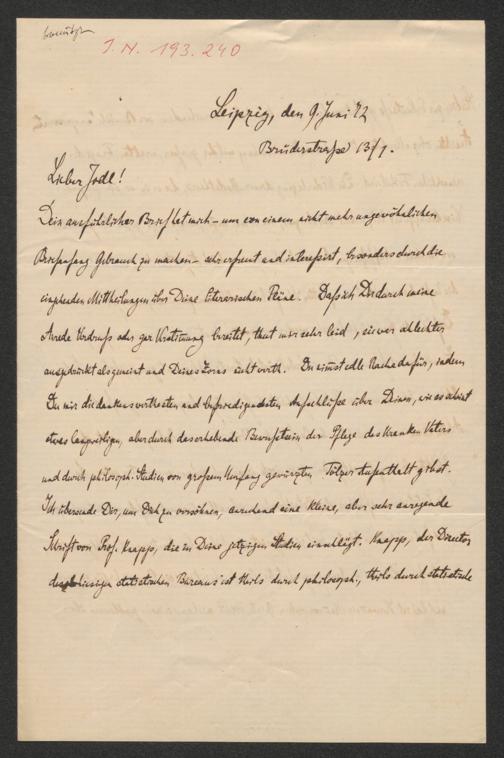 benützt
I. N. 193.240
Leipzig, den 9. Juni 72
Brüderstraße 13/1.
Lieber Jodl!
Dein ausführlicher Brief hat mich – um von einem nicht mehr ungewöhnlichen
Briefanfang Gebrauch zu machen – sehr erfreut und interessirt, besonders durch die
eingehenden Mittheilungen über Deine literarischen Pläne. Daß ich Dir durch meine
Anrede Verdruß oder gar Verstimmung bereitet, thut mir sehr leid, sie war schlechter
ausgedrückt als gemeint und Deines Zorns nicht werth. Du nimmst edle Rache dafür, indem
Du mir die dankenswerthesten und befriedigendsten Aufschlüße über Deinen, wie es scheint
etwas langweiligen, aber durch das erhebende Bewußtsein der Pflege des kranken Vaters
und durch philosoph. Studien von großem Umfang gewürzten Tölzer Aufenthalt giebst.
Ich übersende Dir, um Dich zu versöhnen, anruhend eine kleine, aber sehr anregende
Schrift von Prof. Knapp, die in Deine jetzigen Studien einschlägt. Knapp, der Director
des hiesigen statistischen Bureaus ist theils durch philosoph., theils durch statistische